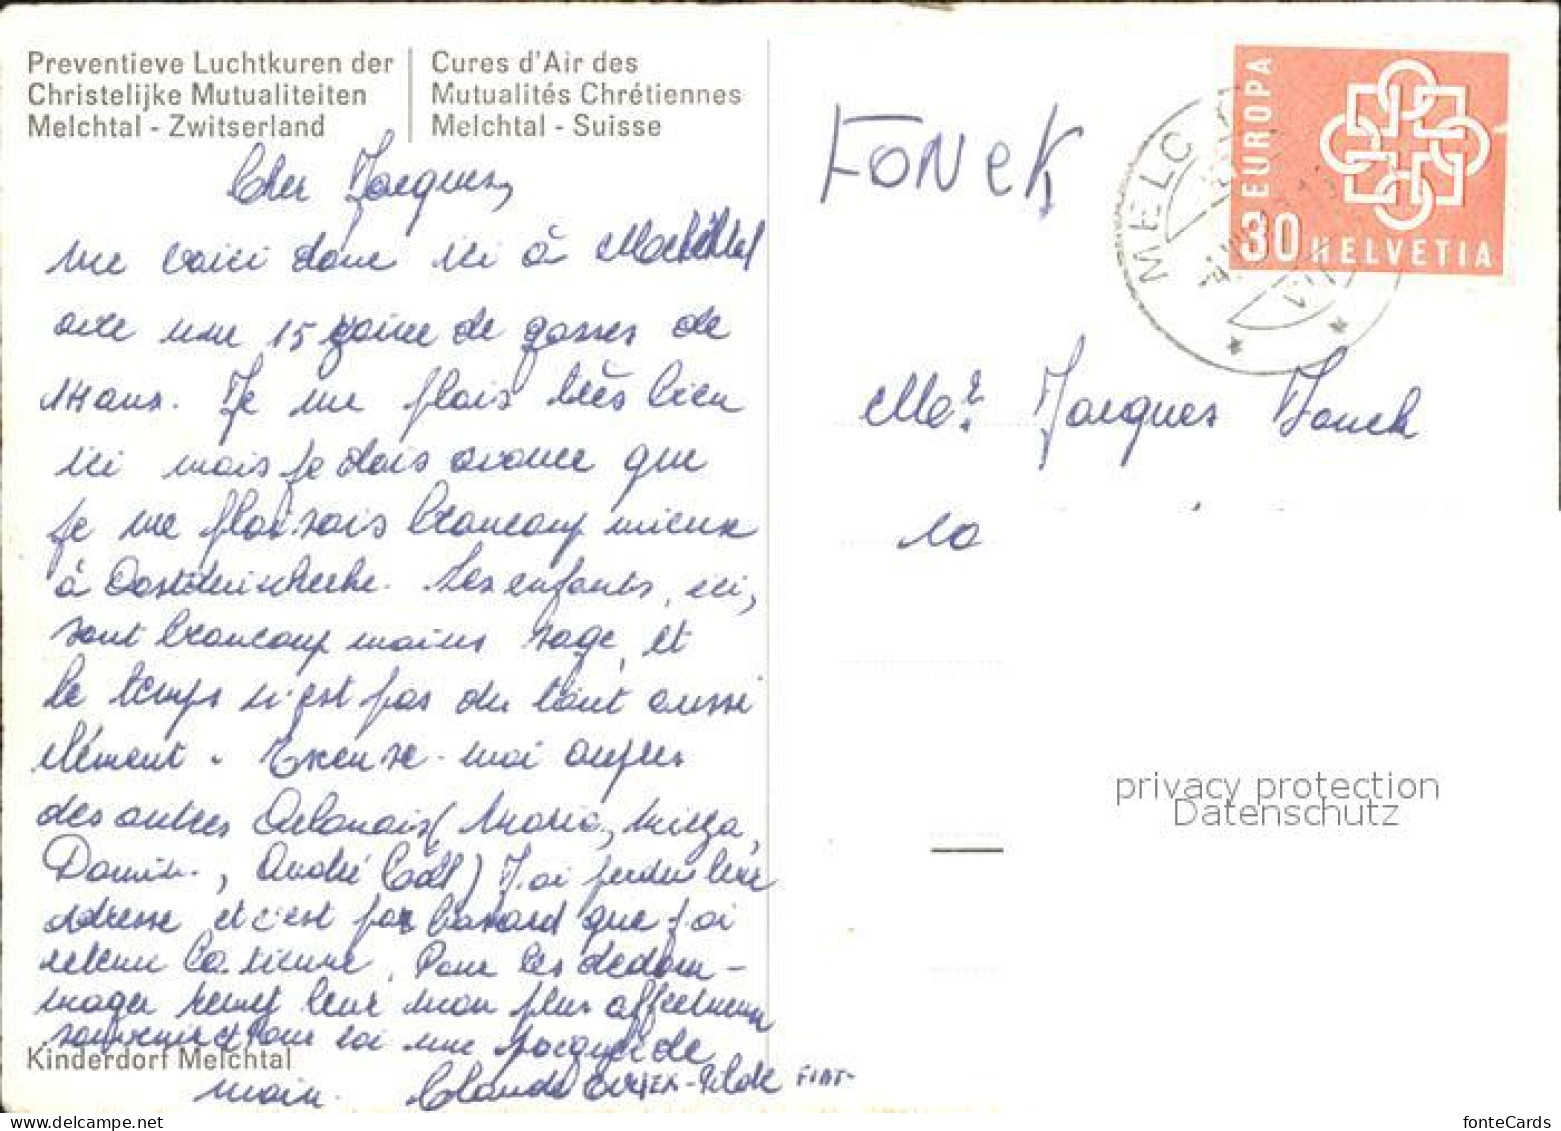 Preventieve Luchtkuren der
Christelijke Mutualiteiten
Melchtal - Zwitserland
Cures d'Air des
Mutualités Chrétiennes
Melchtal - Suisse
Cher Jacques,
me voici donc ici à Melchtal
avec une 15 zaine de gosses de
14 ans. Je me plais très bien
ici mais je dois avouer que
je me plaisais beaucoup mieux
à Oostduinkerke. Les enfants, ici,
sont beaucoup moins sage, et
le temps n'est pas du tout aussi
clément. Excuse-moi auprès
des autres (Maria, Mirza,
André Coët) J'ai perdu leur
adresse et c'est par hasard que j'ai
retenu la tienne. Pour les dédom-
mager remet leur mon plus affectueux
souvenir et pour toi une poignée de
main. Claude
Kinderdorf Melchtal
FONCK
EUROPA
30 HELVETIA
MELC
Jacques Fonck
10
privacy protection
Datenschutz
fonteCards